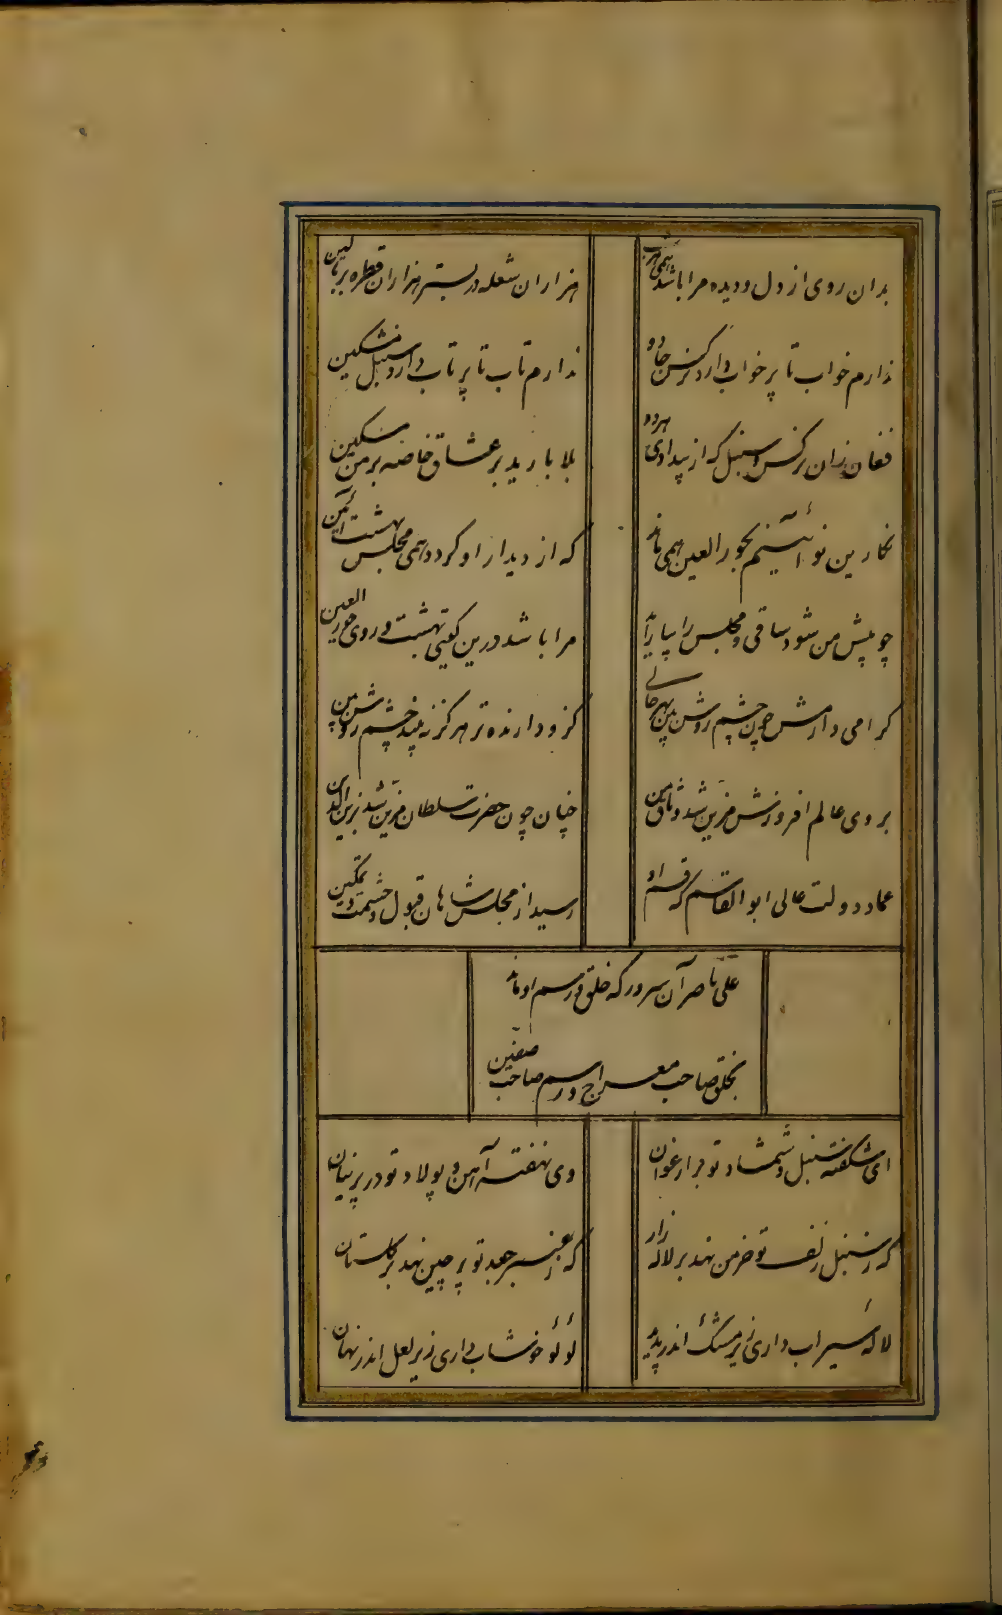 بدان روی از دل و دیده مرا باشد همی هر شب
هزاران شعله در بستر هزاران قطره بر بالین
ندارم خواب تا پر خواب دارد نرگس جادو
ندارم تاب تا پر تاب دارد سنبل مشکین
فغان زان نرکس و سنبل که از بیدادی هر دو
بلا بارید بر عشاق خاصه بر من مسکین
نکارین نو آئینم بحور العین همی ماند
که از دیدار او کردد همی مجلس بهشت آئین
چو پیش من شود ساقی و مجلس را بیاراید
مرا باشد درین کیتی بهشت و روی حور العین
کرامی دارمش چون چشم روشن بین بهر جائی
کزو دارنده تر هرکز نه بیند چشم روشن بین
بروی عالم افروزش مزین شد وثاق من
چنان چون حضرت سلطان مزین شد بزین الدین
عماد دولت عالی ابوالقاسم که قسم او
رسید از مجلس شاهان قبول و حشمت و تمکین
علی ناصر آن سرور که خلق و رسم او ماند
بخلق صاحب معراج و رسم صاحب صفین
ای شکفته سنبل و شمشاد تو بر ارغوان
وی نهفته آهن و پولاد تو در پرنیان
که ز سنبل زلف تو خرمن نهد بر لاله زار
که ز عنبر جعد تو پرچین نهد بر کلستان
لالهٔ سیراب داری زیر مشک اندر پدید
لؤلؤ خوشاب داری زیر لعل اندر نهان